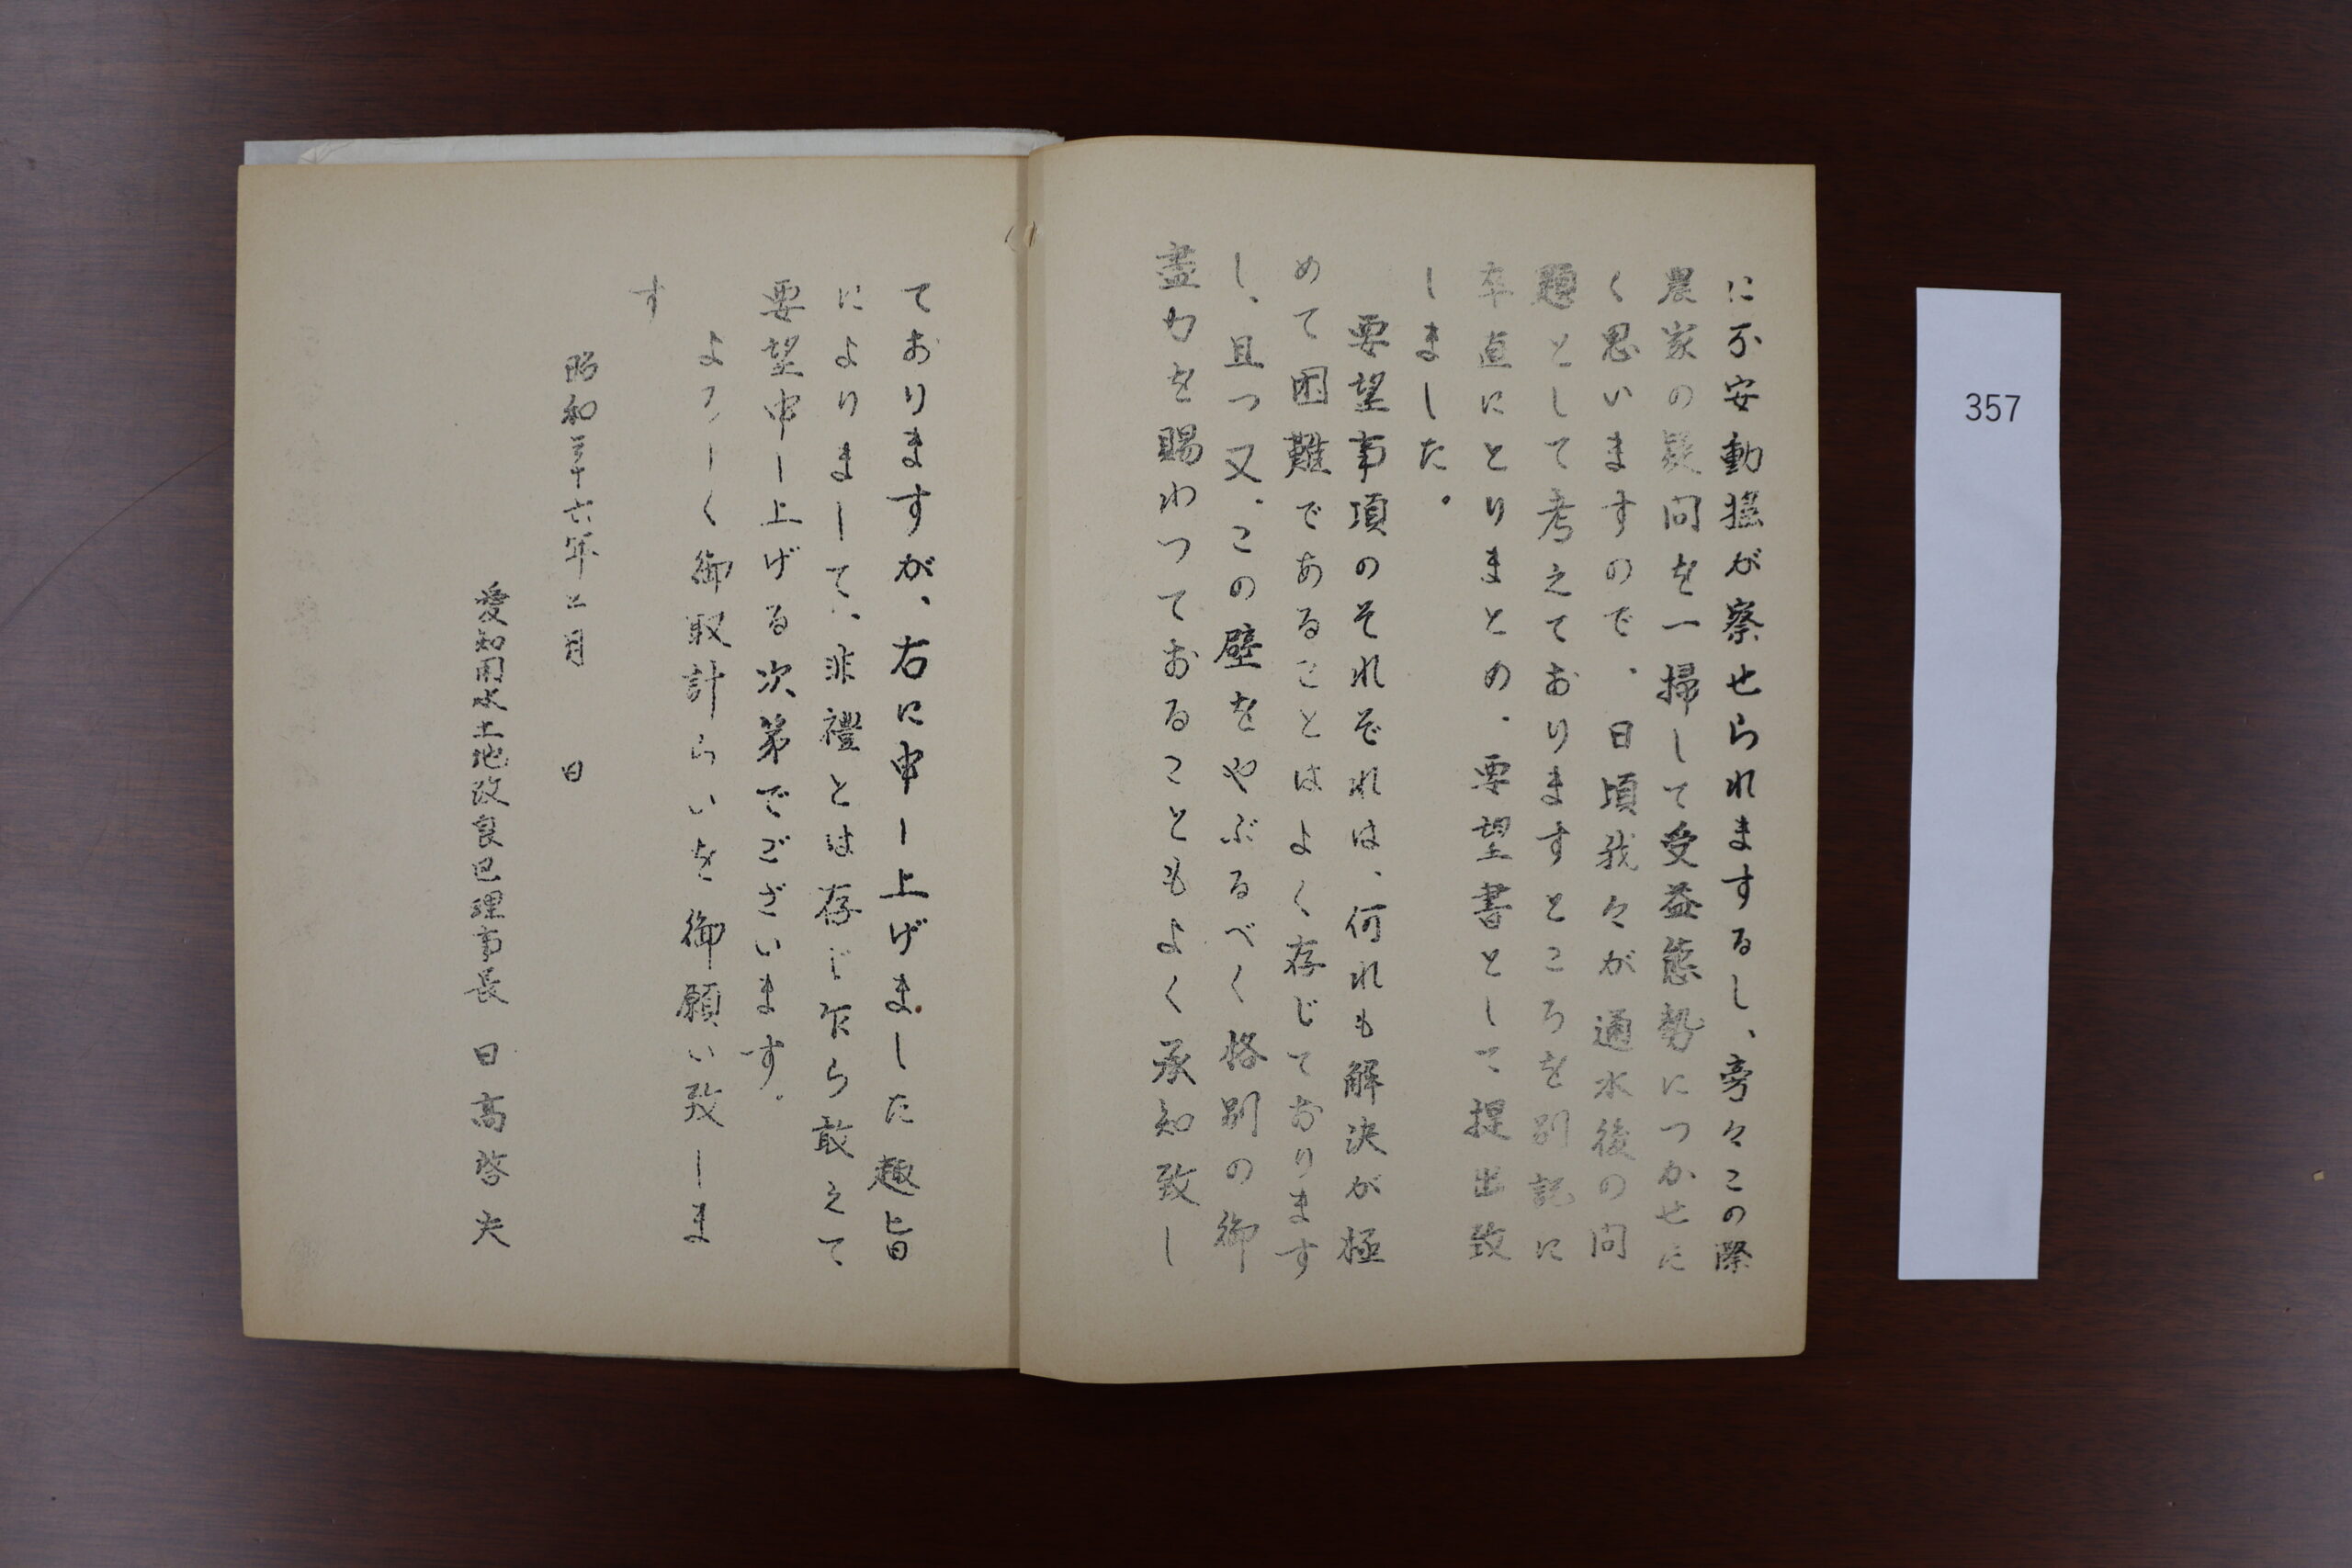 に不安動揺が察せられまするし、旁々この際
農家の疑問を一掃して受益態勢につかせた
く思いますので、日頃我々が通水後の問
題として考えておりますところを別記に
卒直にとりまとめ、要望書として提出致
しました。
要望事項のそれぞれは、何れも解決が極
めて困難であることはよく存じております
し、且つ又、この壁をやぶるべく格別の御
盡力を賜わつておることもよく承知致し
ておりますが、右に申し上げました趣旨
によりまして、非禮とは存じ乍ら敢えて
要望申し上げる次第でございます。
よろしく御取計らいを御願い致しま
す
昭和三十六年二月 日
愛知用水土地改良区理事長 日高啓夫
357